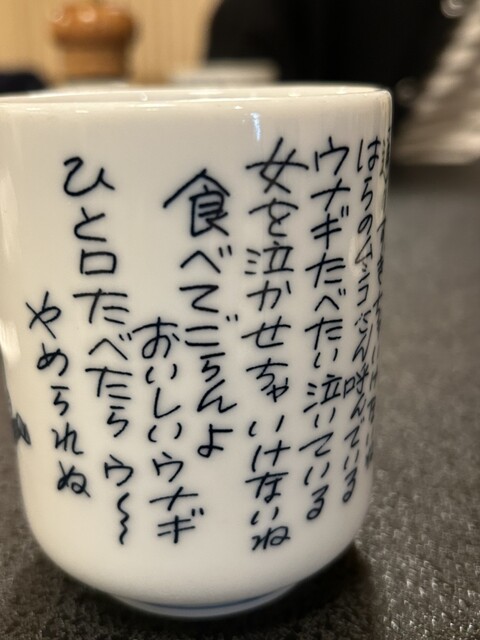 はらのムコさん呼んでいる
ウナギたべたい泣いている
女を泣かせちゃいけないね
食べてごらんよ
おいしいウナギ
ひと口たべたらウ〜
やめられぬ